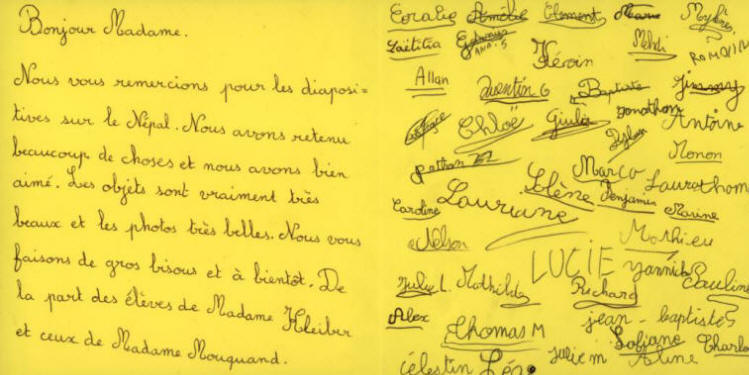 Bonjour Madame.
Nous vous remercions pour les diaposi=
tives sur le Népal. Nous avons retenu
beaucoup de choses et nous avons bien
aimé. Les objets sont vraiment très
beaux et les photos très belles. Nous vous
faisons de gros bisous et à bientôt. De
la part des élèves de Madame Kleiber
et ceux de Madame Mouquand.
Coralie Amélie Clément Marie Mylène
Laëtitia ANA.S Kévin Mehdi ROMAIN
Allan Quentin G Baptiste Jimmy
Chloë Giulia Jonathan Dylan Antoine
nathan Marco Manon
Caroline Lauriane Hélène Benjamin Laurathom Marine
Nelson Mathieu
LUCIE Yannick
Julie L. Mathilde Richard Pauline
Alex Thomas M jean-baptiste
Sofiane Charlo
Célestin Léo julie m Aline